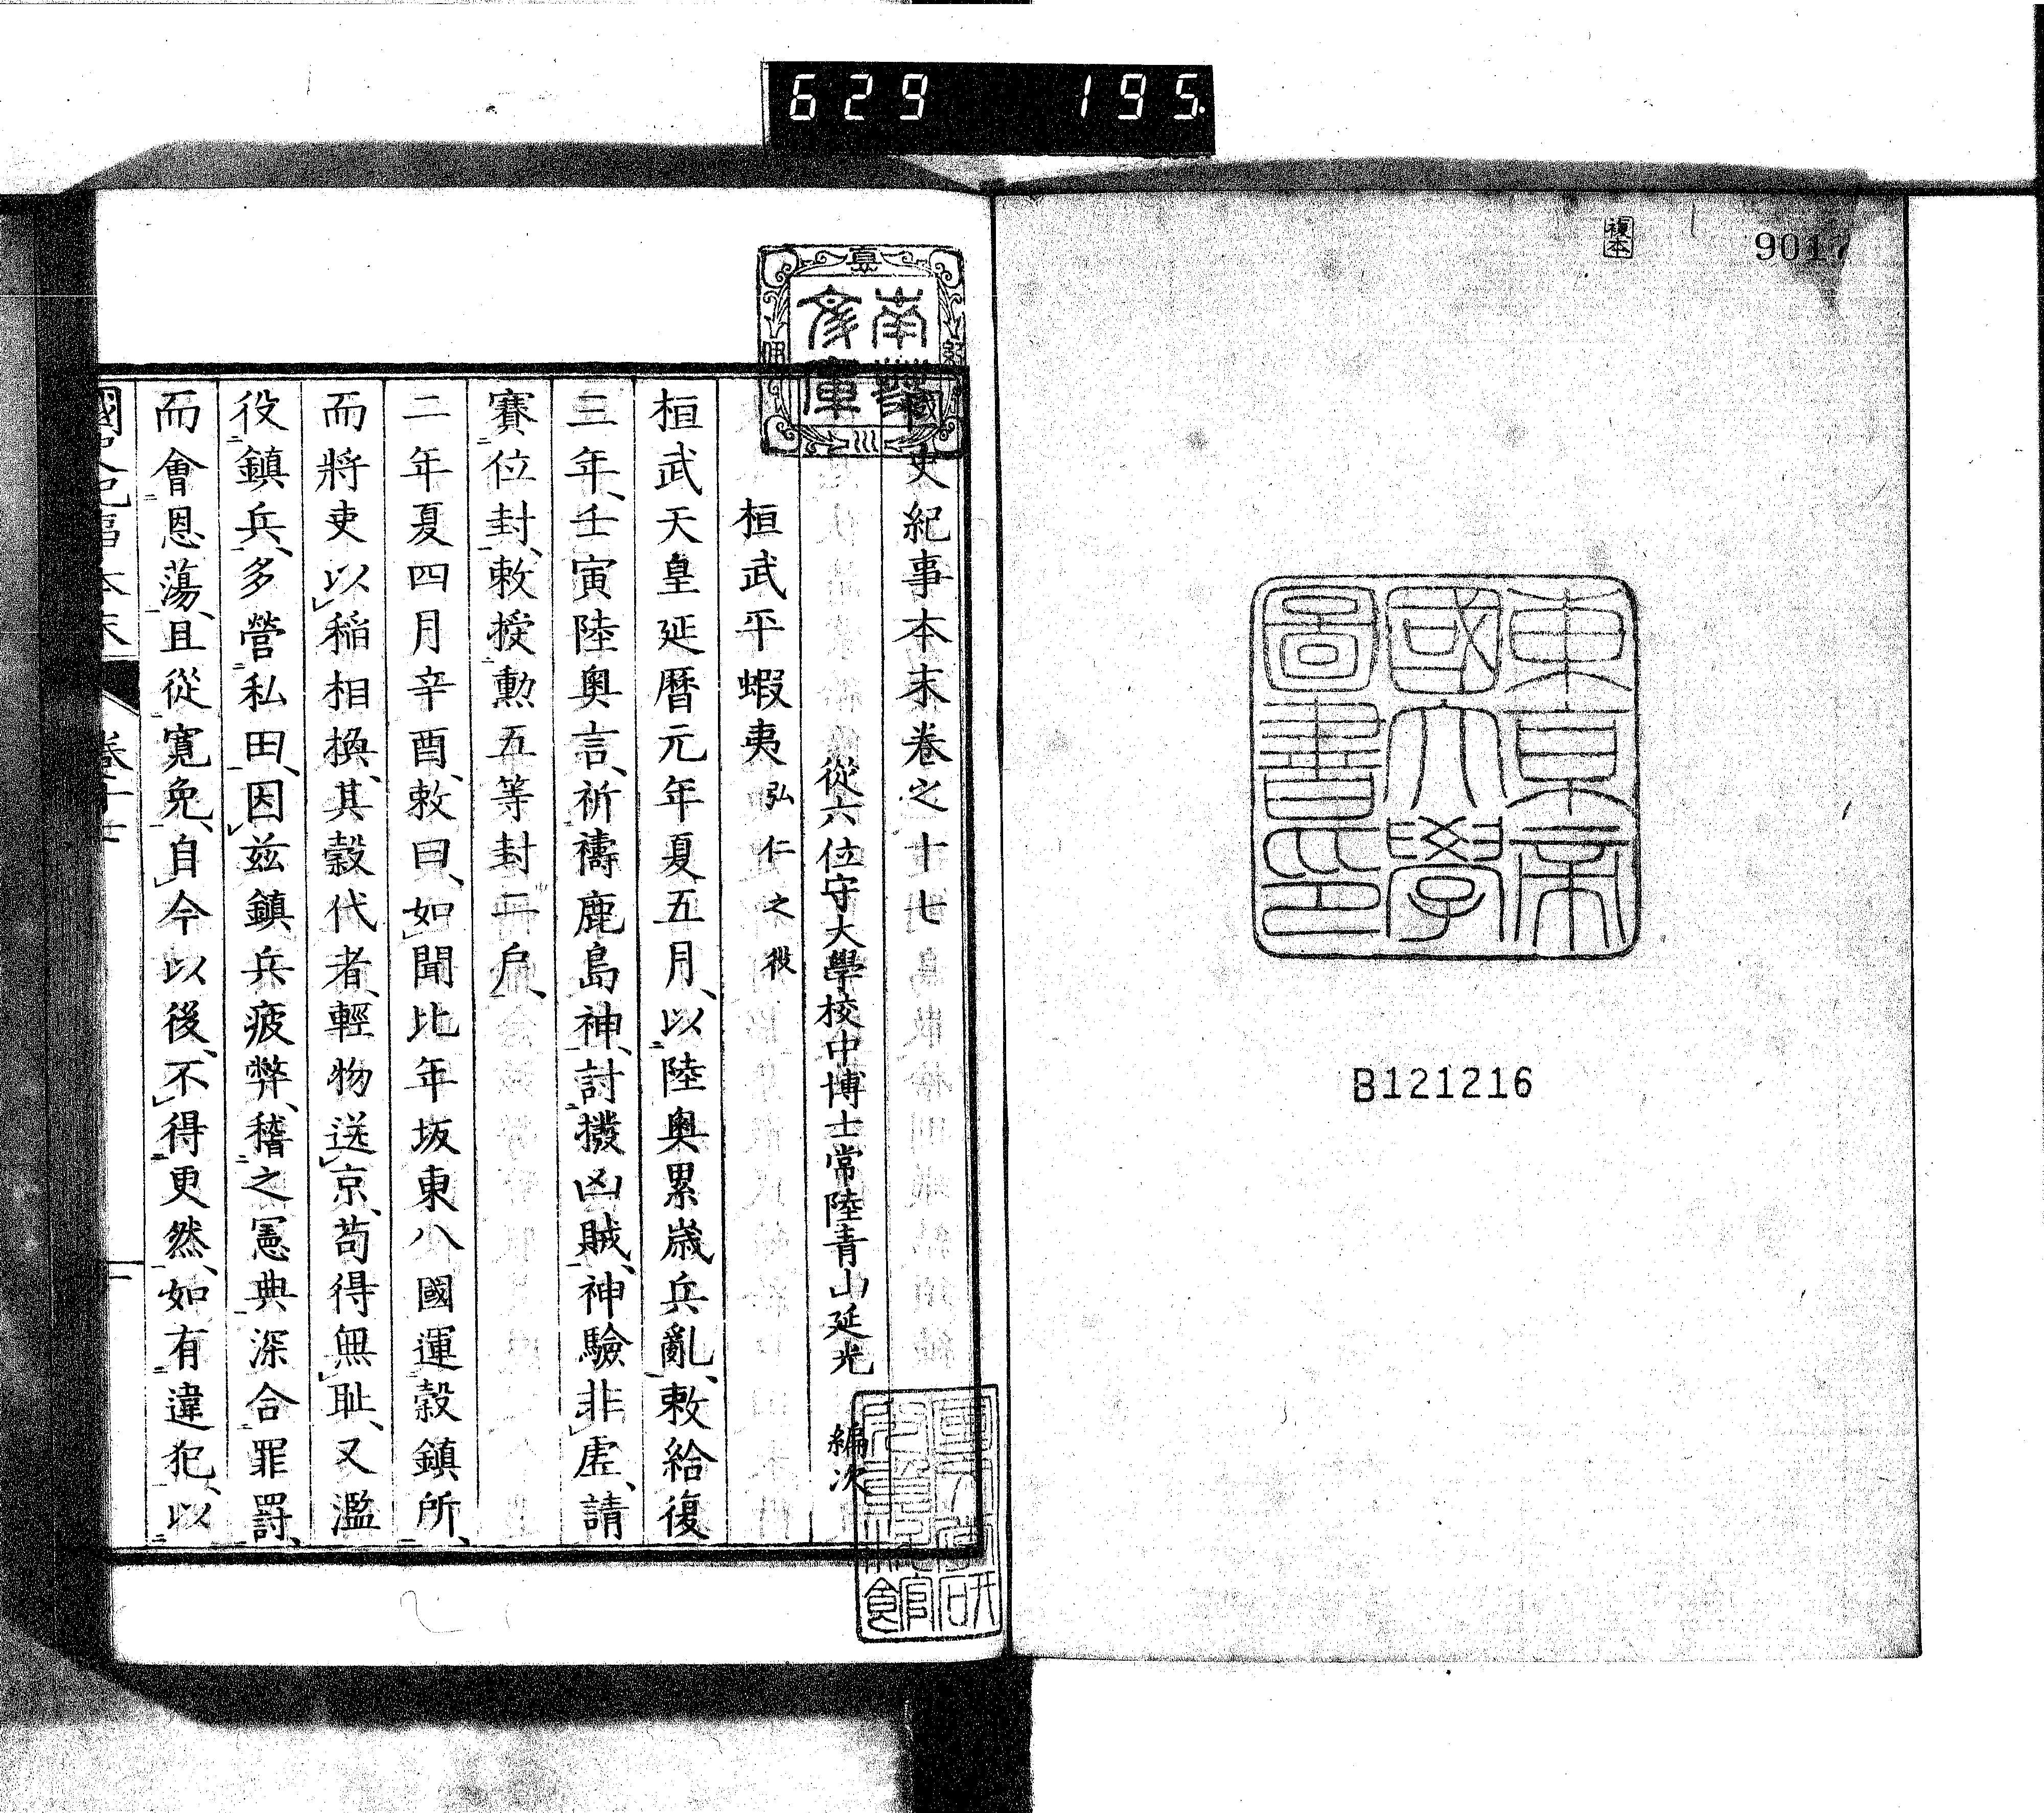 629 195
複本
9017
東京帝
國大學
圖書印
B121216
國史紀事本末卷之十七
從六位守大學校中博士常陸青山延光 編次
桓武平蝦夷 弘仁之役
桓武天皇延曆元年夏五月、以陸奧累歲兵亂、敕給復
三年、壬寅陸奧言、祈禱鹿島神、討撥凶賊、神驗非虛、請
賽位封、敕授勳五等封二戶、
二年夏四月辛酉、敕曰、如聞比年坂東八國運穀鎮所、
而將吏以稻相換、其穀代者、輕物送京、苟得無恥、又濫
役鎮兵、多營私田、因茲鎮兵疲弊、稽之憲典深合罪罰、
而會恩蕩、且從寬免、自今以後、不得更然、如有違犯、以